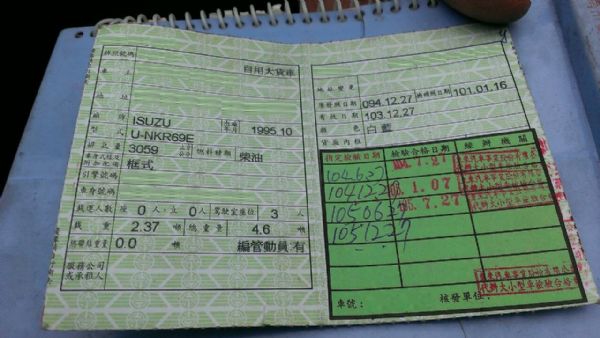 牌照號碼
自用大貨車
車主
地址
廠牌 ISUZU 出廠年月 1995.10
型式 U-NKR69E
排氣量 3059 燃料種類 柴油
車身式樣及附加配備 框式
引擎號碼
車身號碼
載運人數 座0人.立0人 駕駛室座位 3 人
載重 2.37 噸 總重量 4.6 噸
0.0 噸 編管動員 有
服務公司或承租人
地址變更
原發照日期 094.12.27 換補照日期 101.01.16
有效日期 103.12.27
顏色 白藍
貨廂內框
指定檢驗日期 檢驗合格日期 經辦機關
104.6.27 104.7.27
1041227 1.07
1050627 105.7.27
1051227
代辦大小型車檢驗合格章
車號: 核發單位: